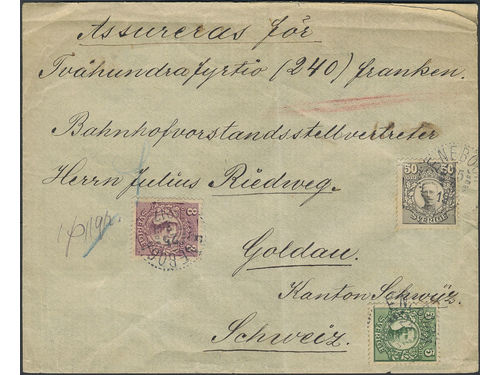 Assureras för
Tvåhundrafyrtio (240) franken.
Bahnhofvorstandsstellvertreter
Herrn Julius Riedweg.
Goldau.
Kanton Schwyz.
Schweiz.
50 50
SVERIGE
8 8
SVERIGE
5 5
SVERIGE